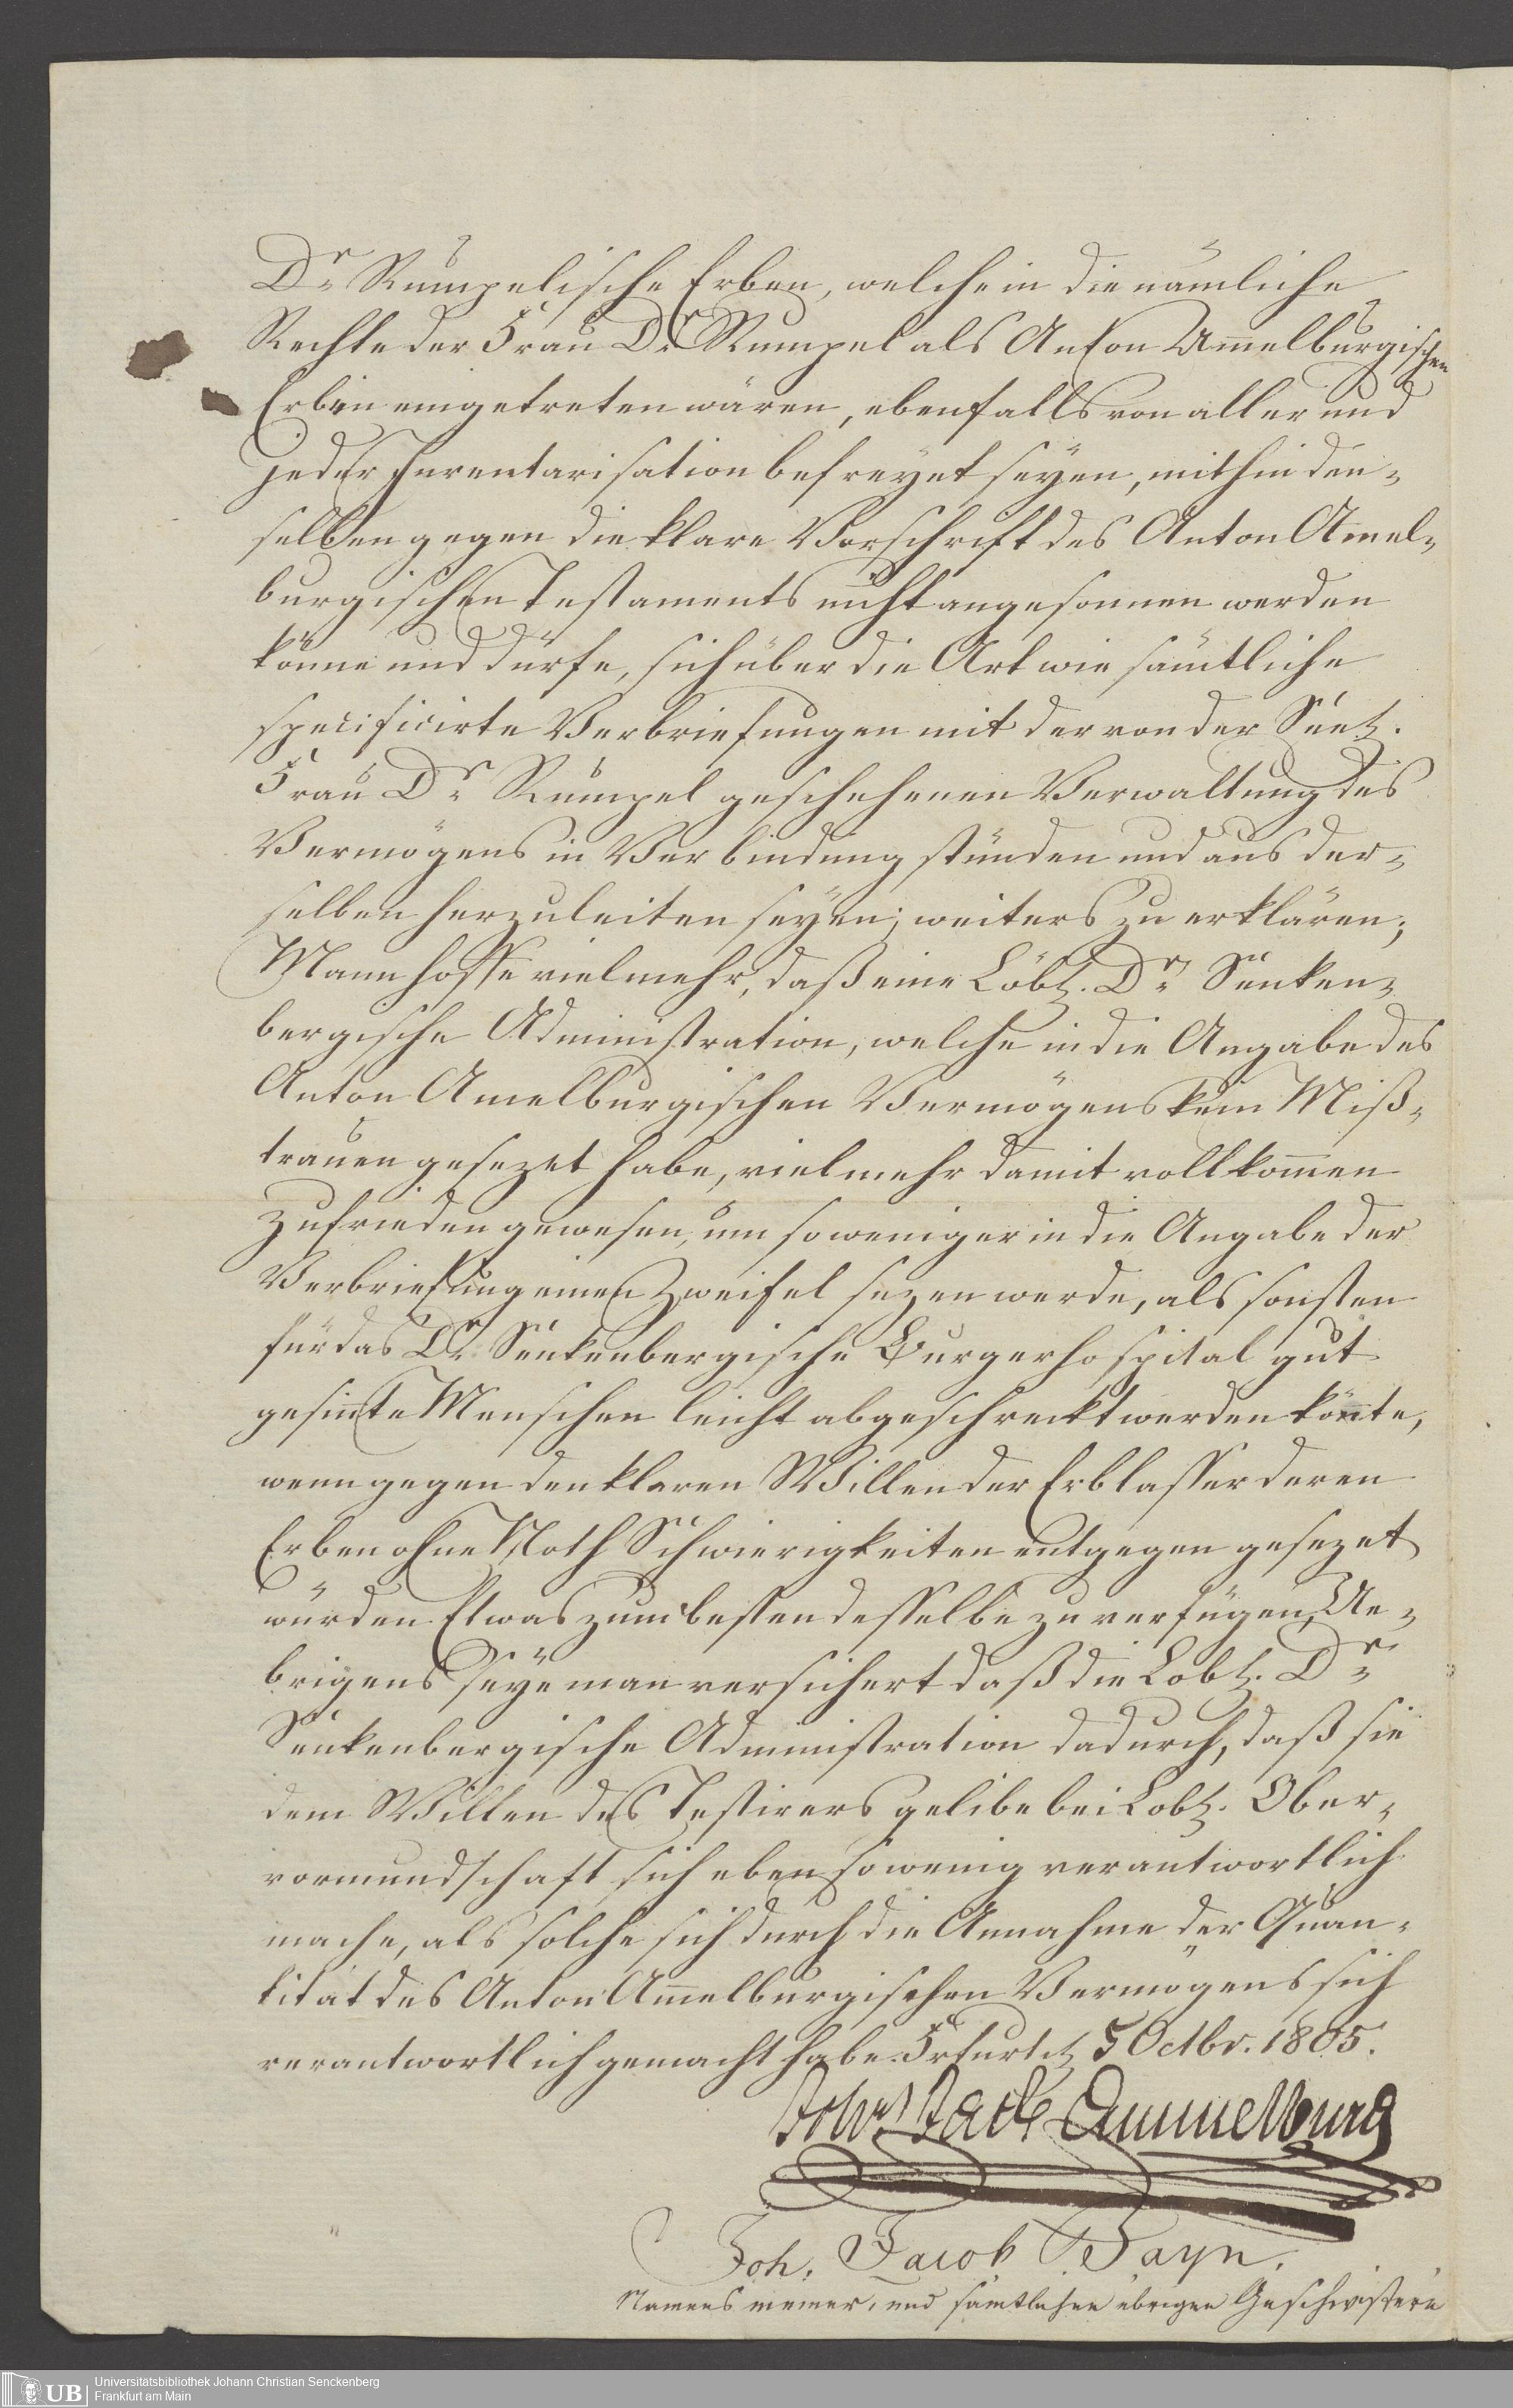 Dr. Rumpelische Erben, welche in die nämliche
Rechte der Frau Dr. Rumpel als Anton Am̄elburgischen
Erbin eingetreten wären, ebenfalls von aller und
jeder Inventarisation befreyet seyen, mithin den-
selben gegen die klare Vorschrift des Anton Amel-
burgischen Testaments nicht angesonnen werden
könne und dürfe, sich über die Art wie sämtliche
specificirte Verbriefungen mit der von der Seel.
Frau Dr. Rumpel geschehenen Verwaltung des
Vermögens in Verbindung stünden und aus der-
selben herzuleiten seyen, weiters zu erklären;
Mann hoffe vielmehr, daß eine Löbl. Dr. Senken-
bergische Administration, welche in die Angabe des
Anton Amelburgischen Vermögens kein Miß-
trauen gesezet habe, vielmehr damit vollkom̄en
zufrieden gewesen, um so weniger in die Angabe der
Verbriefung einen Zweifel sezen werde, als sonsten
für das Dr. Senkenbergische Burgerhospital gut
gesin̄te Menschen leicht abgeschreckt werden kön̄te,
wenn gegen den klaren Willen der Erblasser deren
Erben ohne Noth Schwierigkeiten entgegen gesezet
würden Etwas zum besten desselbe zu verfügen, Ue-
brigens seye man versichert daß die Löbl. Dr.
Senkenbergische Administration dadurch, daß sie
dem Willen des Testirers gelebe bei Löbl. Ober-
vormundschaft sich eben so wenig verantwortlich
mache, als solche sich durch die Annahme der Quan-
tität des Anton Am̄elburgischen Vermögens sich
verantwortlich gemacht habe. Frkfurt d. 5 Octbr. 1805.
Johs Jacob Ammelburg
Joh. Jacob Bayn.
Namens meiner, und sämtlichen übrigen Geschwistern
Universitätsbibliothek Johann Christian Senckenberg
UB Frankfurt am Main